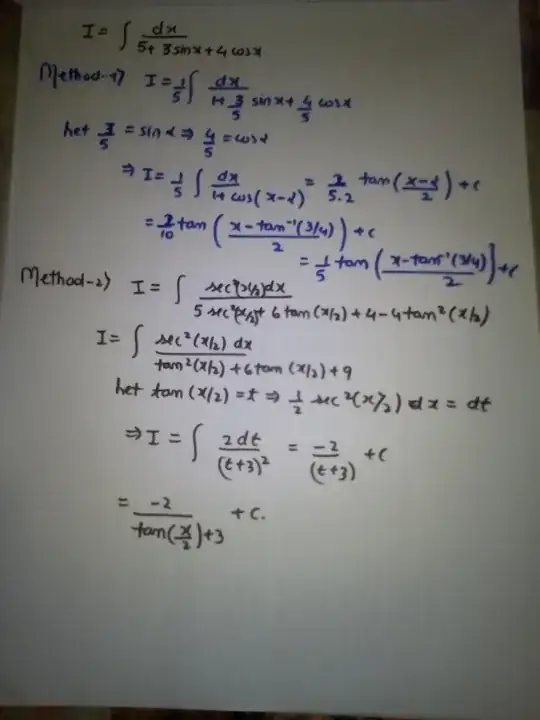 I = ∫ dx / (5 + 3 sinx + 4 cosx)
Method-1) I = 1/5 ∫ dx / (1 + 3/5 sinx + 4/5 cosx)
Let 3/5 = sin α ⇒ 4/5 = cosα
⇒ I = 1/5 ∫ dx / (1 + cos(x-α)) = 2/5.2 tan((x-α)/2) + c
= 2/10 tan((x - tan⁻¹(3/4))/2) + c
= 1/5 tan((x - tan⁻¹(3/4))/2) + c
Method-2) I = ∫ sec²(x/2) dx / (5 sec²(x/2) + 6 tan(x/2) + 4 - 4 tan²(x/2))
I = ∫ sec²(x/2) dx / (tan²(x/2) + 6 tan(x/2) + 9)
Let tan(x/2) = t ⇒ 1/2 sec²(x/2) dx = dt
⇒ I = ∫ 2dt / (t+3)² = -2 / (t+3) + c
= -2 / (tan(x/2) + 3) + c.